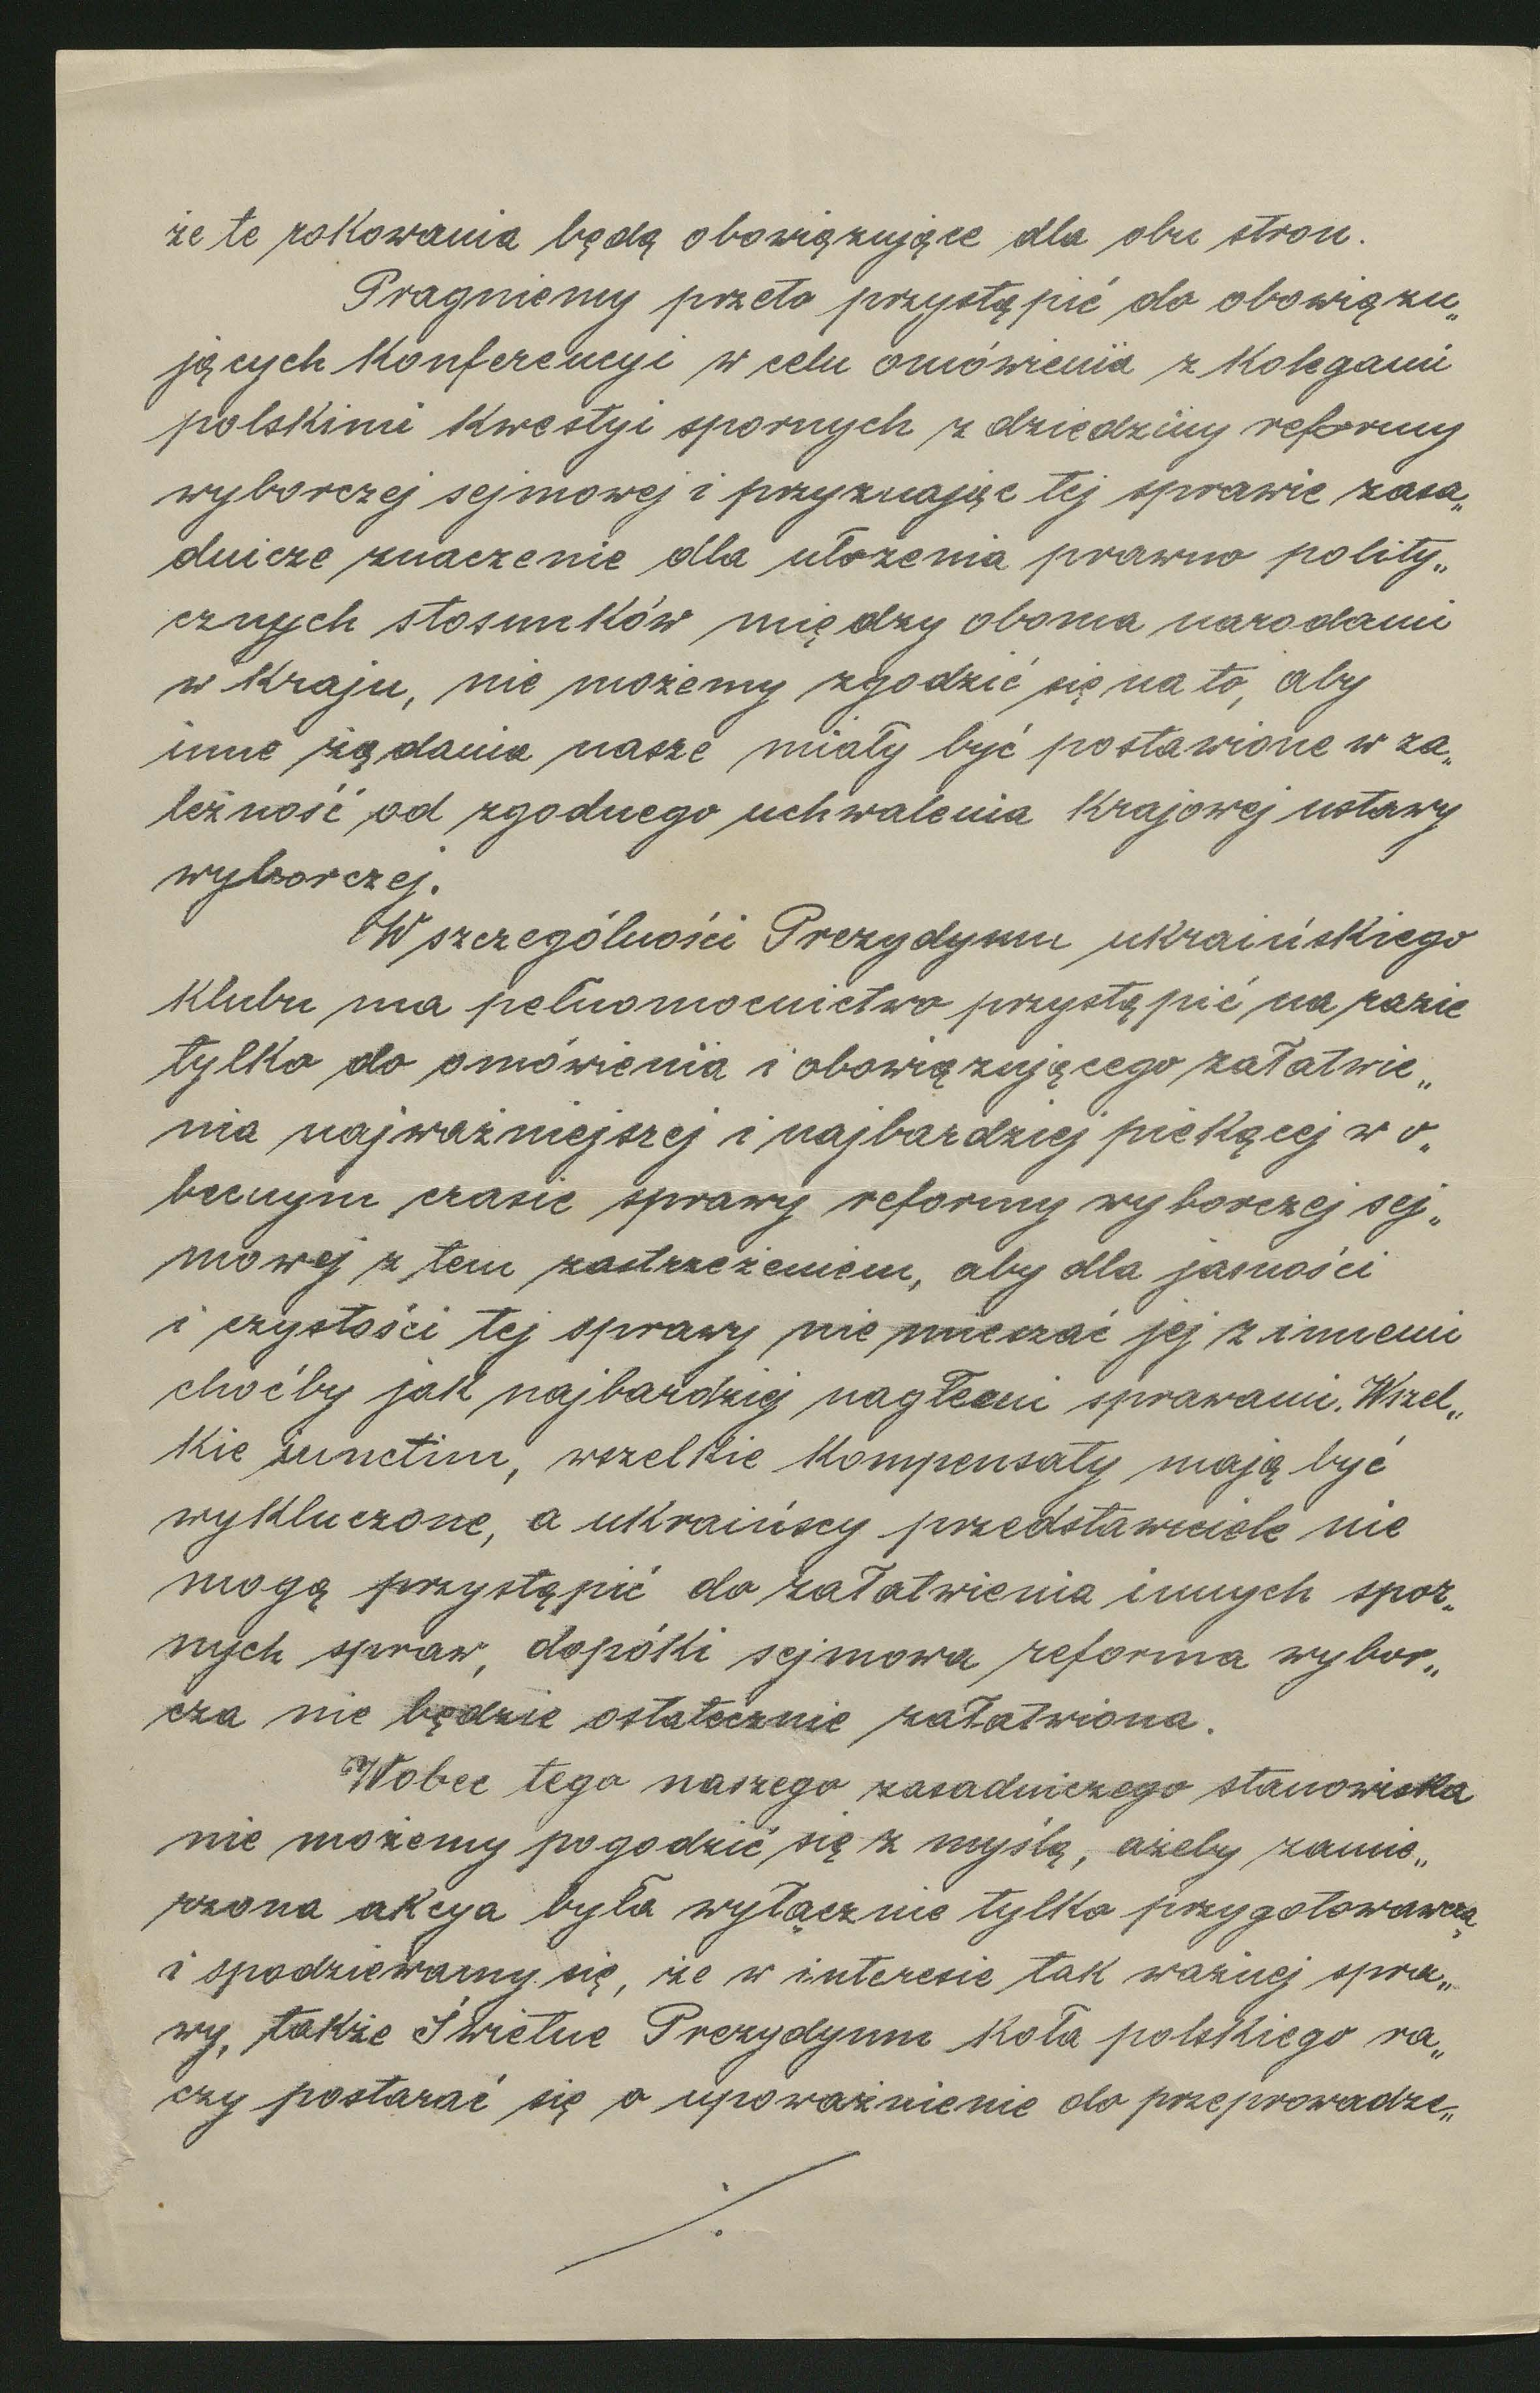 że te rokowania będą obowiązujące dla obu stron.
Pragniemy przeto przystąpić do obowiązu„
jących konferencyi w celu omówienia z kolegami
polskimi kwestyi spornych z dziedziny reformy
wyborczej sejmowej i przyznając tej sprawie zasa„
dnicze znaczenie dla ułożenia prawno polity„
cznych stosunków między oboma narodami
w kraju, nie możemy zgodzić się na to, aby
inne żądania nasze miały być postawione w za„
leżność od zgodnego uchwalenia krajowej ustawy
wyborczej.
W szczególności Prezydyum ukraińskiego
klubu ma pełnomocnictwo przystąpić na razie
tylko do omówienia i obowiązującego załatwie„
nia najważniejszej i najbardziej piekącej w o„
becnym czasie sprawy reformy wyborczej sej„
mowej z tem zastrzeżeniem, aby dla jasności
i czystości tej sprawy nie mieszać jej z innemi
choćby jak najbardziej nagłemi sprawami. Wszel„
kie iunctim, wszelkie kompensaty mają być
wykluczone, a ukraińscy przedstawiciele nie
mogą przystąpić do załatwienia innych spor„
nych spraw, dopóki sejmowa reforma wybor„
cza nie będzie ostatecznie załatwiona.
Wobec tego naszego zasadniczego stanowiska
nie możemy pogodzić się z myślą, ażeby zamie„
rzona akcya była wyłącznie tylko przygotowawczą
i spodziewamy się, że w interesie tak ważnej spra„
wy, także Świetne Prezydyum koła polskiego ra„
czy postarać się o upoważnienie do przeprowadze„
./.